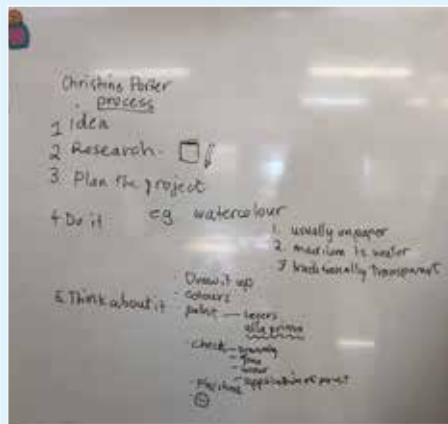 Christine Porter
process
1 idea
2 Research-
3 Plan the project
4 Do it eg watercolour
1. usually on paper
2. medium is water
3 traditionally transparent
5. Think about it
· Draw it up
· colours
paint — layers
alla prima
· check — drawing
- tone
- colour
- application of paint